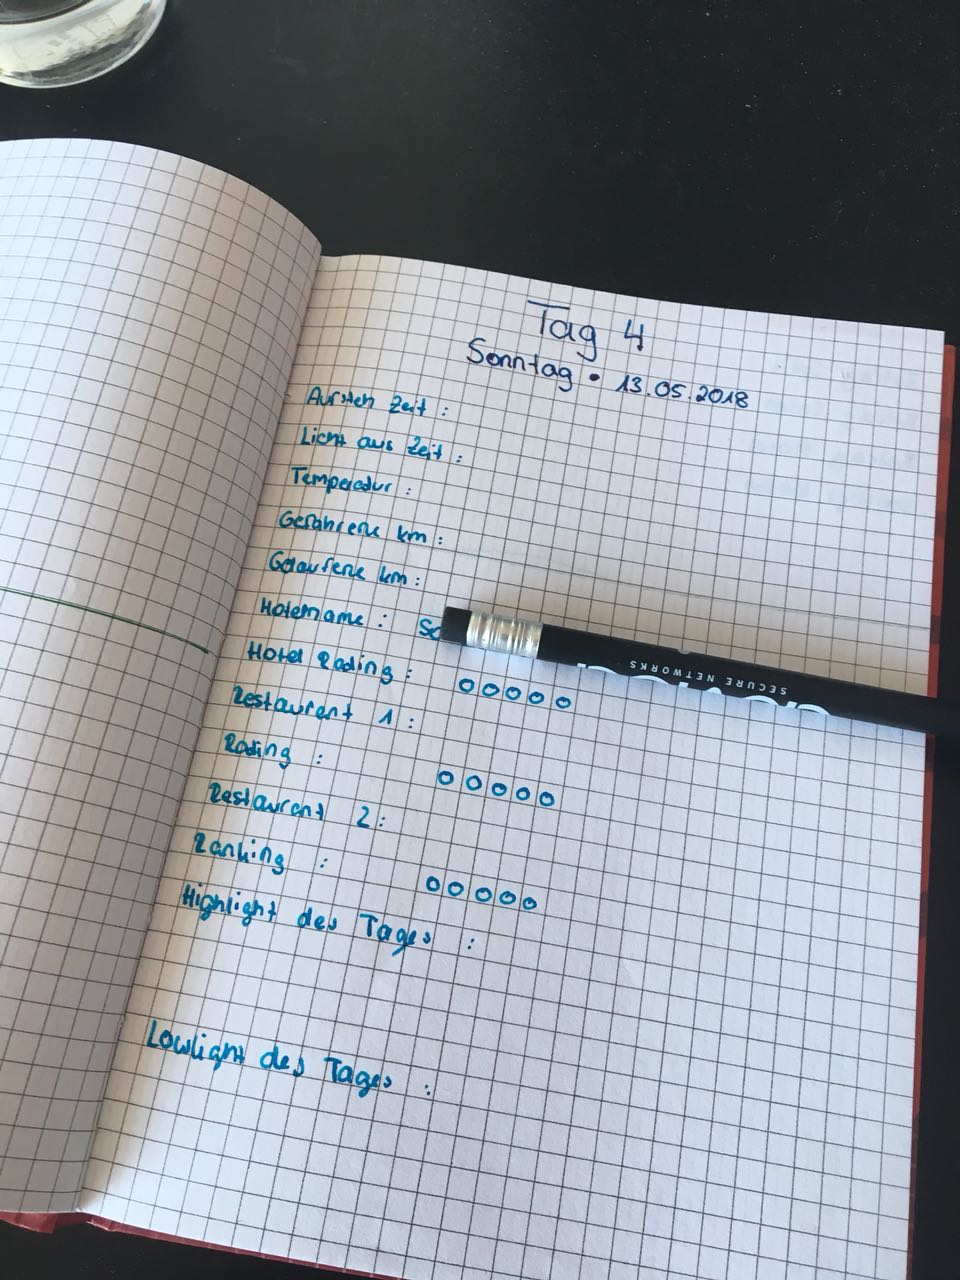 Tag 4
Sonntag • 13.05.2018
Aufsteh Zeit :
Licht aus Zeit :
Temperatur :
Gefahrene km :
Gelaufene km :
Hotelname :
Hotel Rading :
Restaurant 1 :
Rading :
Restaurant 2 :
Ranking :
Highlight des Tages :
Lowlight des Tages :
SECURE NETWORKS